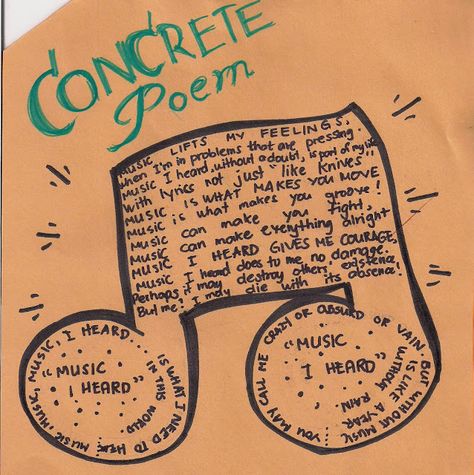 CONCRETE
Poem
MUSIC LIFTS MY FEELINGS,
when I'm in problems that are pressing.
Music I heard, without a doubt, is part of my life
with lyrics not just "like knives".
MUSIC IS WHAT MAKES YOU MOVE
Music is what makes you groove!
Music can make you fight,
Music can make everything alright
MUSIC I HEARD GIVES ME COURAGE,
Music I heard does to me no damage.
Perhaps it may destroy others' existence
But me! I may die with its absence!
MUSIC, MUSIC, MUSIC, I HEARD... IS WHAT I NEED TO HEAR IN THIS WORLD
"MUSIC
I HEARD"
YOU MAY CALL ME CRAZY OR ABSURD OR VAIN, BUT WITHOUT MUSIC IS LIKE A YEAR WITHOUT RAIN
"MUSIC
I HEARD"